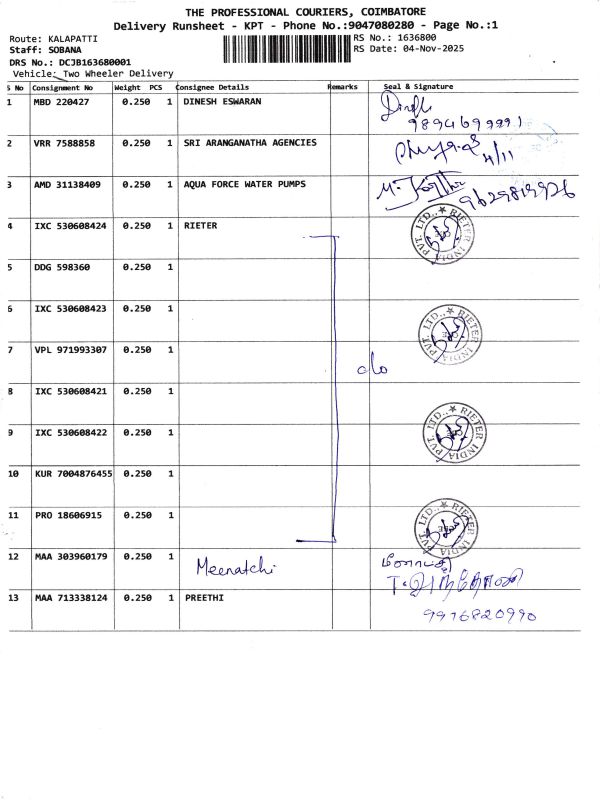 THE PROFESSIONAL COURIERS, COIMBATORE
Delivery Runsheet - KPT - Phone No.:9047080280 - Page No.:1
Route: KALAPATTI
RS No.: 1636800
Staff: SOBANA
RS Date: 04-Nov-2025
DRS No.: DCJB163680001
Vehicle: Two Wheeler Delivery
S No Consignment No Weight PCS Consignee Details Remarks Seal & Signature
1 MBD 220427 0.250 1 DINESH ESWARAN
2 VRR 7588858 0.250 1 SRI ARANGANATHA AGENCIES
4/11
3 AMD 31138409 0.250 1 AQUA FORCE WATER PUMPS
9629819926
4 IXC 530608424 0.250 1 RIETER
RIETER INDIA PVT. LTD.,
5 DDG 598360 0.250 1
6 IXC 530608423 0.250 1
RIETER INDIA PVT. LTD.,
7 VPL 971993307 0.250 1
8 IXC 530608421 0.250 1
9 IXC 530608422 0.250 1
RIETER INDIA PVT. LTD.,
10 KUR 7004876455 0.250 1
11 PRO 18606915 0.250 1
RIETER INDIA PVT. LTD.,
12 MAA 303960179 0.250 1 Meenatchi மீனாட்சி
13 MAA 713338124 0.250 1 PREETHI
9976820990